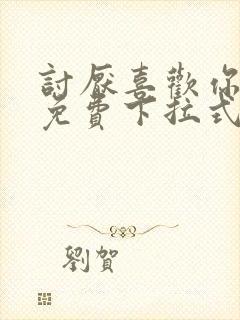 討厭喜歡你
免費下拉式
劉賀